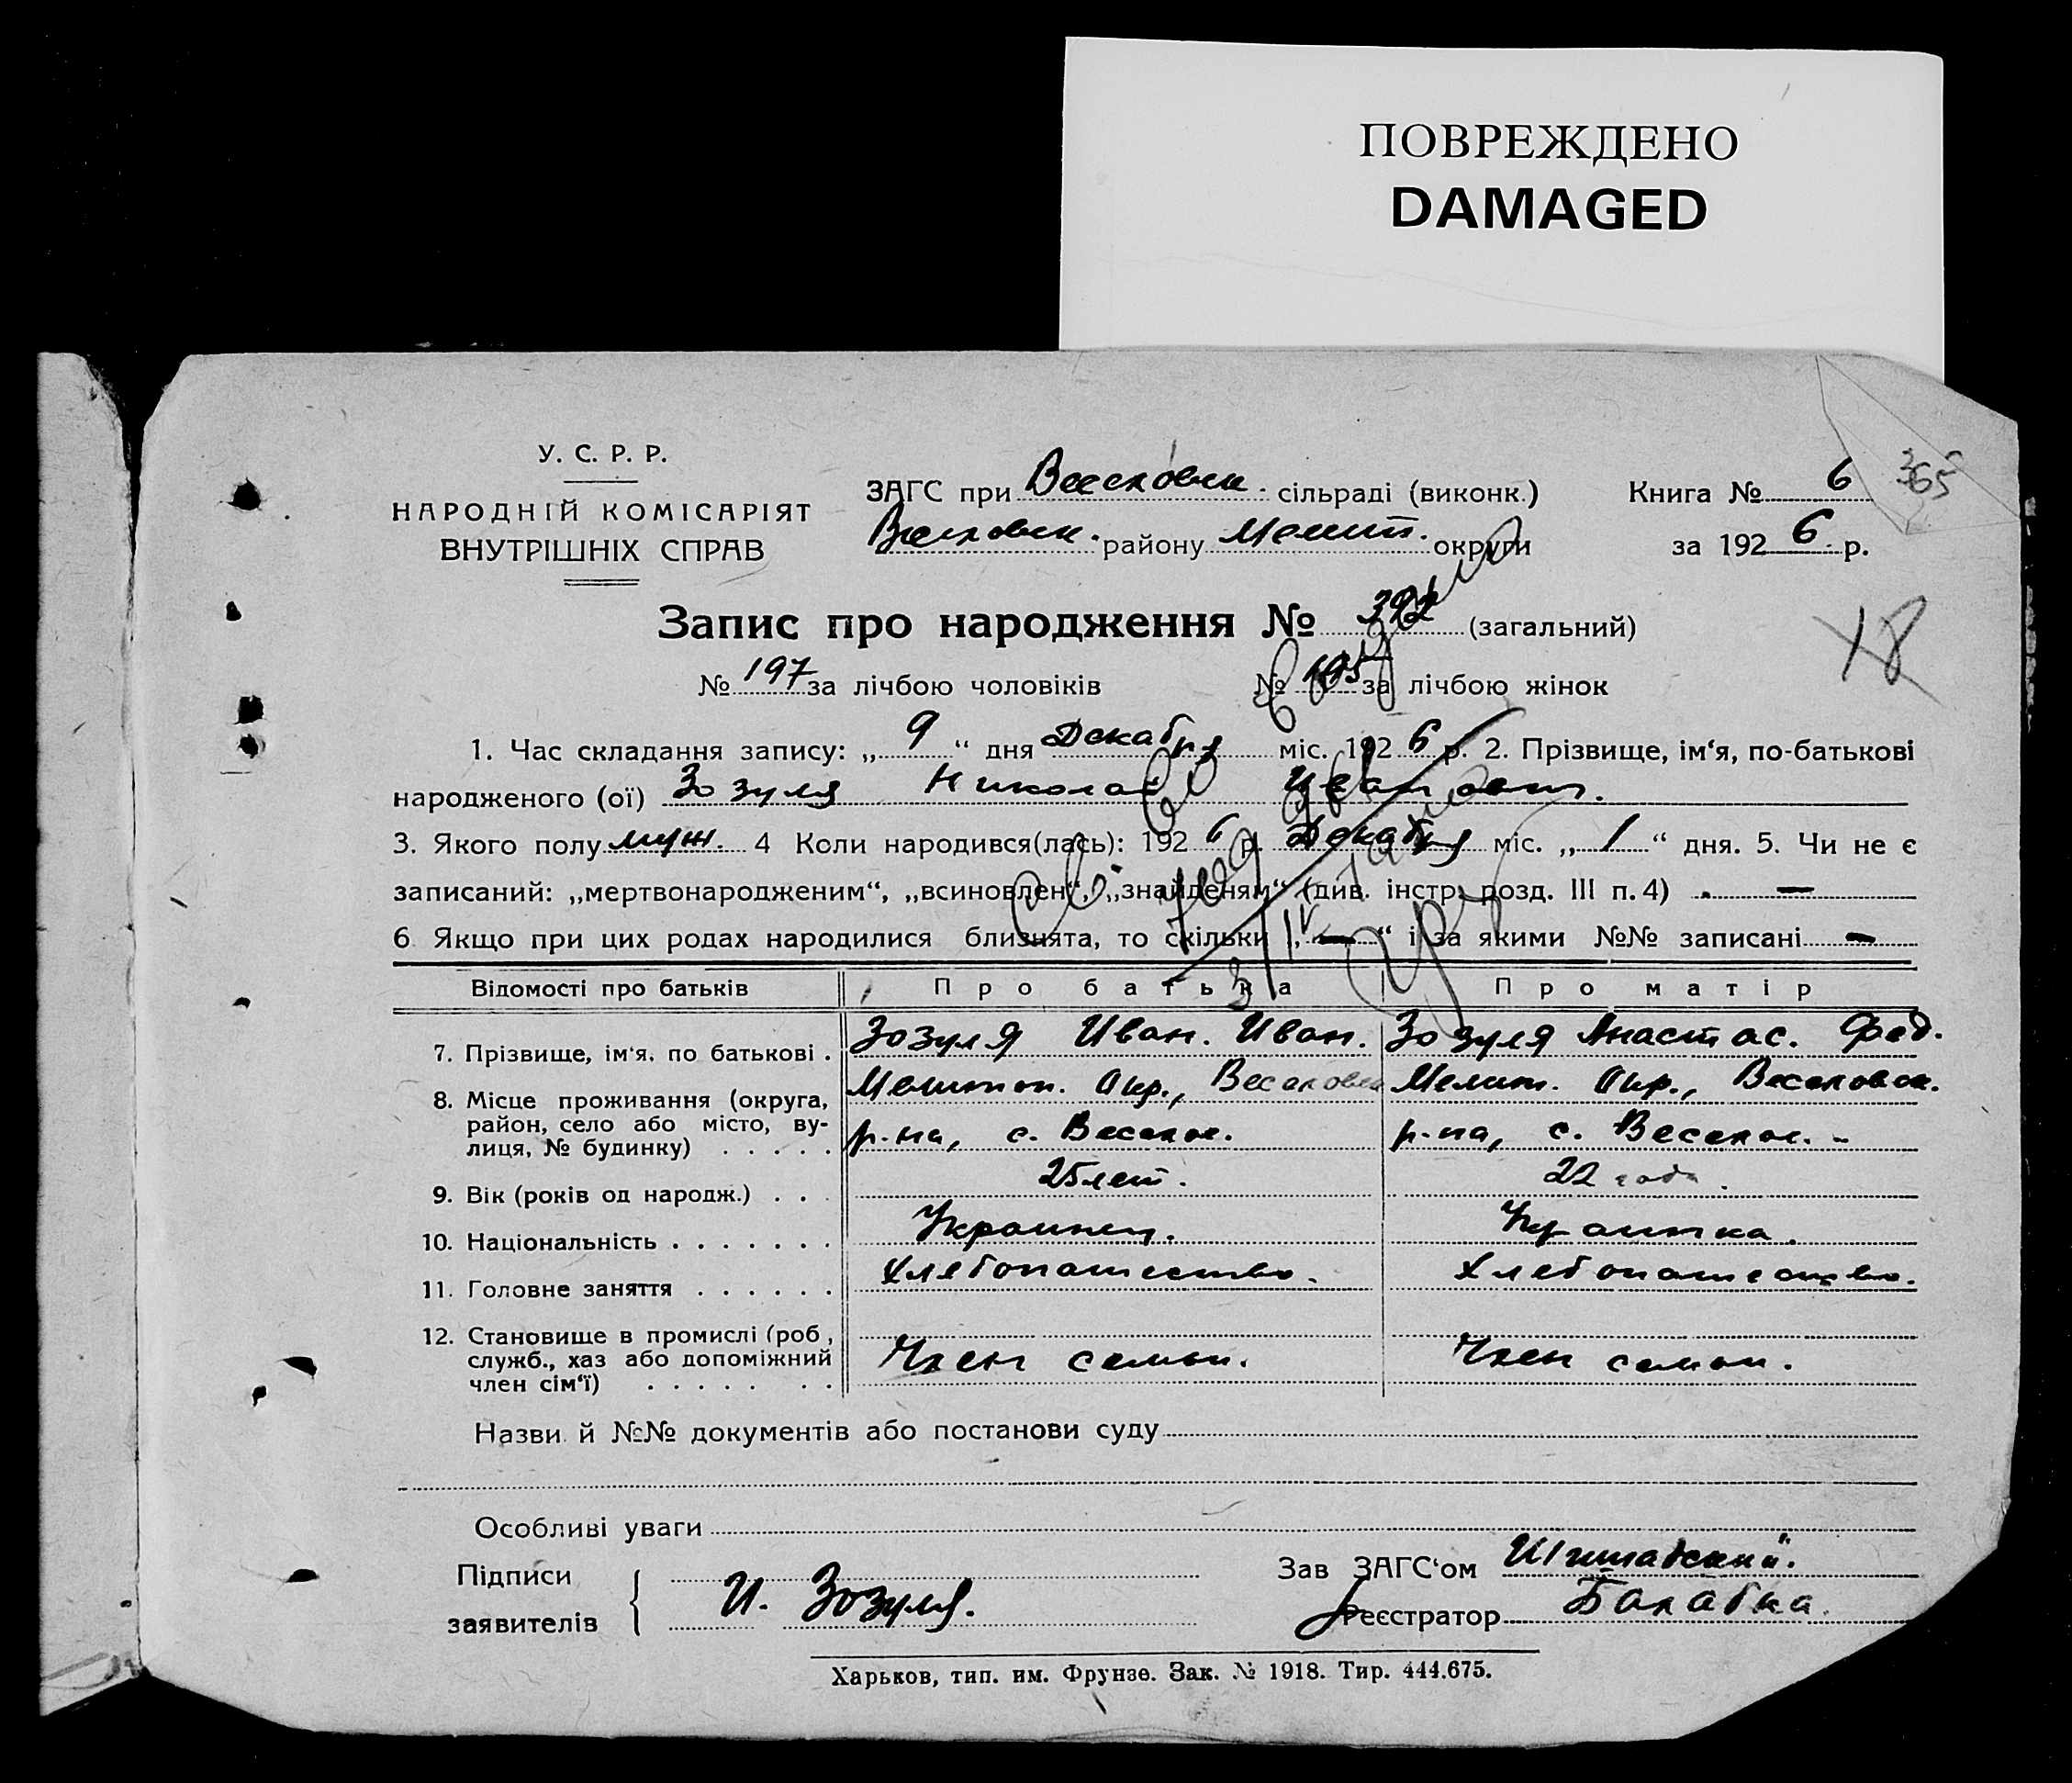 ПОВРЕЖДЕНО
DAMAGED
У. С. Р. Р.
НАРОДНІЙ КОМІСАРІЯТ
ВНУТРІШНІХ СПРАВ
ЗАГС при Веселовск. сільраді (виконк.)
Веселовск. району Мелит. округи
Книга № 6
365
за 1926 р.
Запис про народження № 392 (загальний)
№ 197 за лічбою чоловіків № 195 за лічбою жінок
1. Час складання запису: „ 9 “ дня Декабря міс. 1926 р. 2. Прізвище, ім‘я, по-батькові
народженого (ої) Зозуля Николай Иванович.
3. Якого полу муж. 4 Коли народився(лась): 1926 р. Декабря міс. „ 1 “ дня. 5. Чи не є
записаний: „мертвонародженим“, „всиновлен“, „знайденям“ (див. інстр. розд. III п. 4) . —
6 Якщо при цих родах народилися близнята, то скільки „ — “ і за якими №№ записані —
Відомості про батьків Про батька Про матір
7. Прізвище, ім‘я, по батькові . Зозуля Иван. Иван. Зозуля Анастас. Фед.
8. Місце проживання (округа, район, село або місто, вулиця, № будинку) . . . . .
Мелитоп. Окр., Веселовск Мелит. Окр., Веселовск.
р-на, с. Веселое. р-на, с. Веселое. -
9. Вік (років од народж.) . . . 25 лет. 22 года.
10. Національність . . . . . . . Украинец. Украинка.
11. Головне заняття . . . . . . Хлебопашество. Хлебопашество.
12. Становище в промислі (роб., служб., хаз або допоміжний член сім‘ї) . . . . . . .
Член семьи. Член семьи.
Назви й №№ документів або постанови суду
Особливі уваги
Підписи
заявителів
И. Зозуля.
Зав ЗАГС‘ом
Реєстратор Балабка.
Харьков, тип. им. Фрунзе. Зак. № 1918. Тир. 444.675.